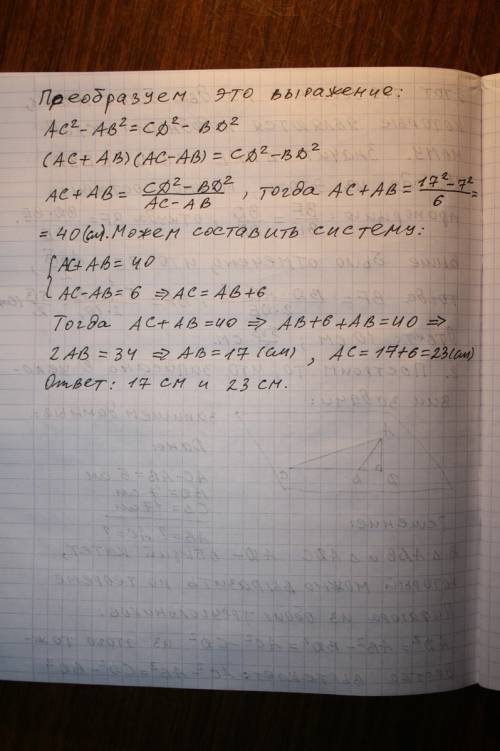 Преобразуем это выражение:
AC²-AB²=CD²-BD²
(AC+AB)(AC-AB)=CD²-BD²
AC+AB=\frac{CD²-BD²}{AC-AB}, тогда AC+AB=\frac{17²-7²}{6}=
=40(см). Можем составить систему:
{AC+AB=40
AC-AB=6 ⇒ AC=AB+6
Тогда AC+AB=40 ⇒ AB+6+AB=40 ⇒
2AB=34 ⇒ AB=17(см), AC=17+6=23(см)
Ответ: 17 см и 23 см.